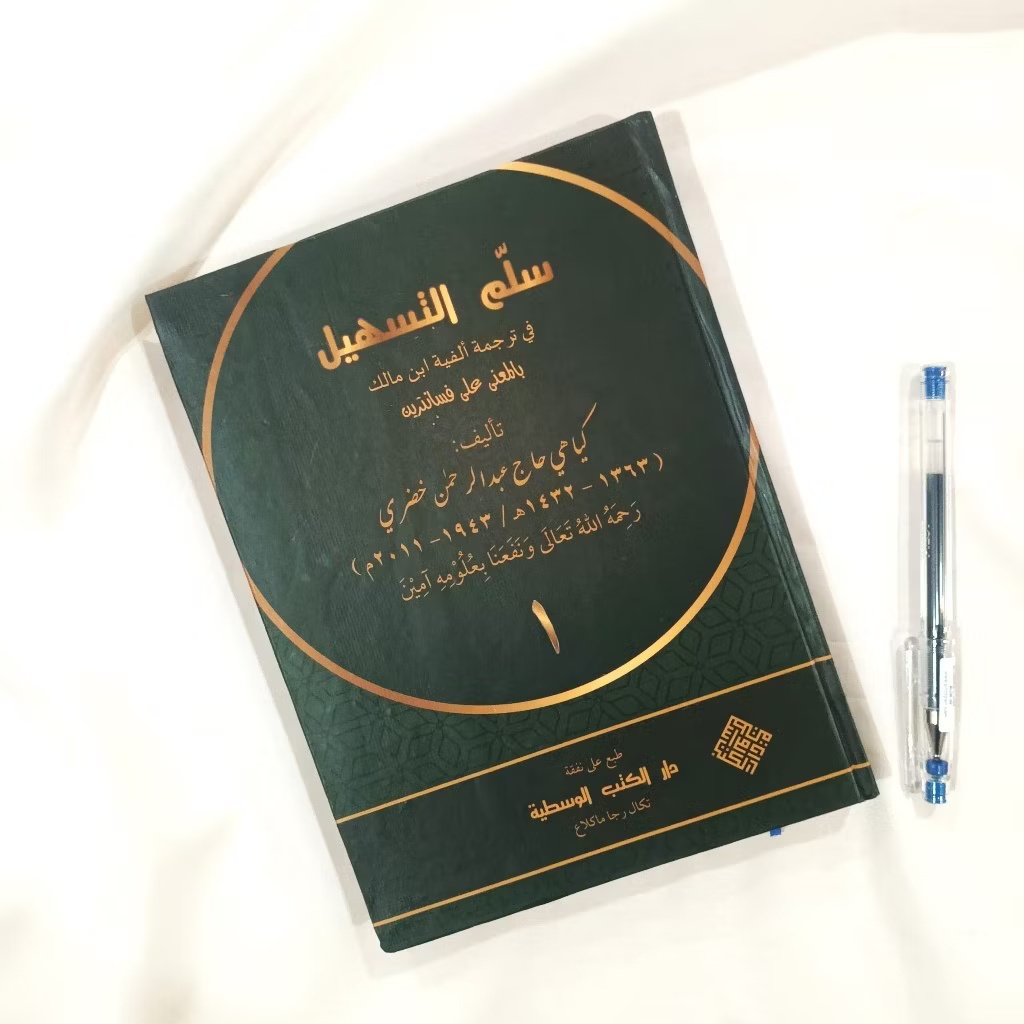 سلّم التسهيل
في ترجمة ألفية ابن مالك
بالمعنى على فسانترين
تأليف:
كياهي حاج عبدالرحمٰن خضري
(١٣٦٣ - ١٤٣٢هـ / ١٩٤٣ - ٢٠١١م)
رَحِمَهُ اللهُ تَعَالَى وَنَفَعَنَا بِعُلُوْمِهِ آمِيْنَ
١
طبع على نفقة
دار الكتب الوسطية
تكال رجا ماكلاغ